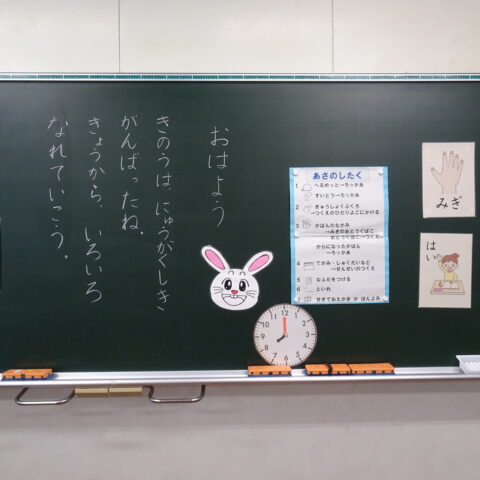 おはよう
きのうは、にゅうがくしき
がんばったね。
きょうから、いろいろ
なれていこう。
あさのしたく
1 へるめっと→ろっかあ
すいとう→ろっかあ
2 きゅうしょくぶくろ
→つくえのひだりよこにかける
3 かばんのなかみ
→みぎのおどうぐばこ
おどうぐばこ→つくえ
からになったかばん
→ろっかあ
4 てがみ・しゅくだいなど
→せんせいのつくえ
5 なふだをつける
6 といれ
7 せきでおえかき か ほんよみ
みぎ
はい
12
1
2
3
4
5
6
7
8
9
10
11